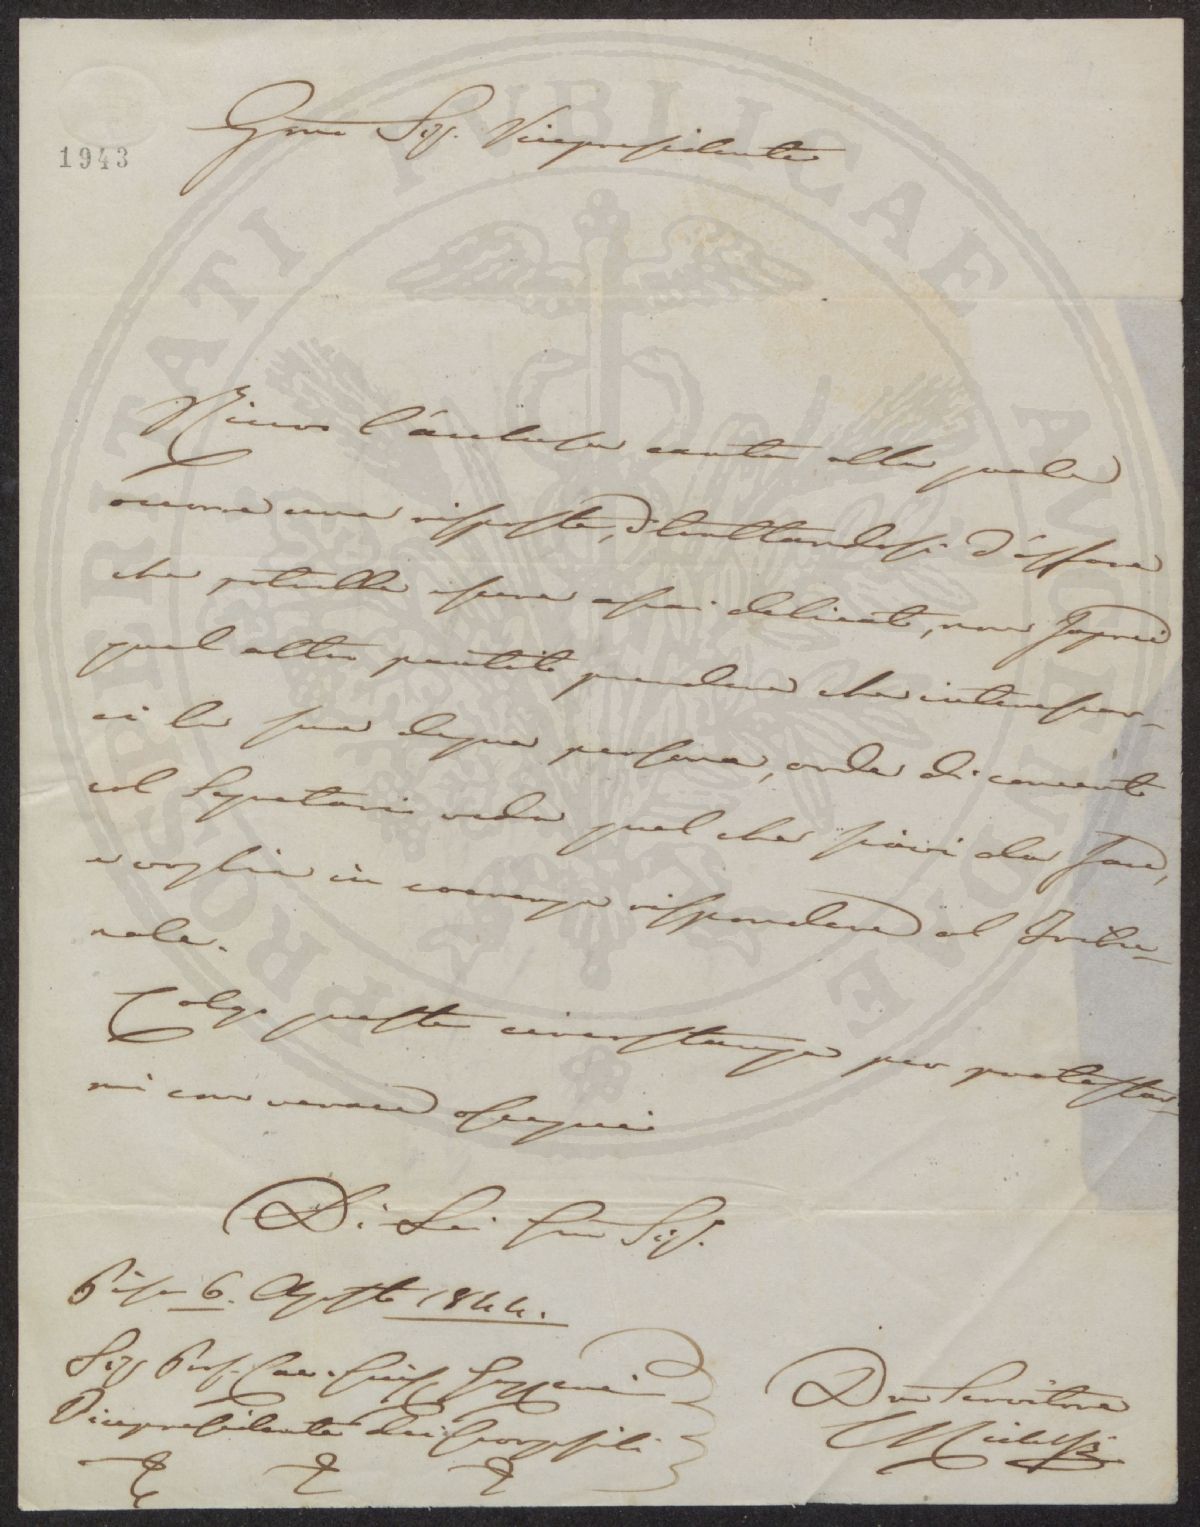 1943
Gmo Sig. Vicepresidente
Ricevo l'acclusa carta alla quale
occorre una risposta, e trattandosi d'affare
che potrebbe essere assai delicato, non saprei
qual altro partito prendere che interessar-
ci la sua degna persona, onde di concerto
col Segretario veda quel che siavi da fare,
e voglia in coerenza rispondere al Tribu-
nale.
Colgo questa circostanza per protestar-
mi con verace ossequio
Di Lei Gmo Sig.
Pisa 6. Agosto 1844.
Sig Prof. Cav. Vicepresidente dei Georgofili
Dmo Servitore
PROSPERITATI PVBLICAE AVGENDAE